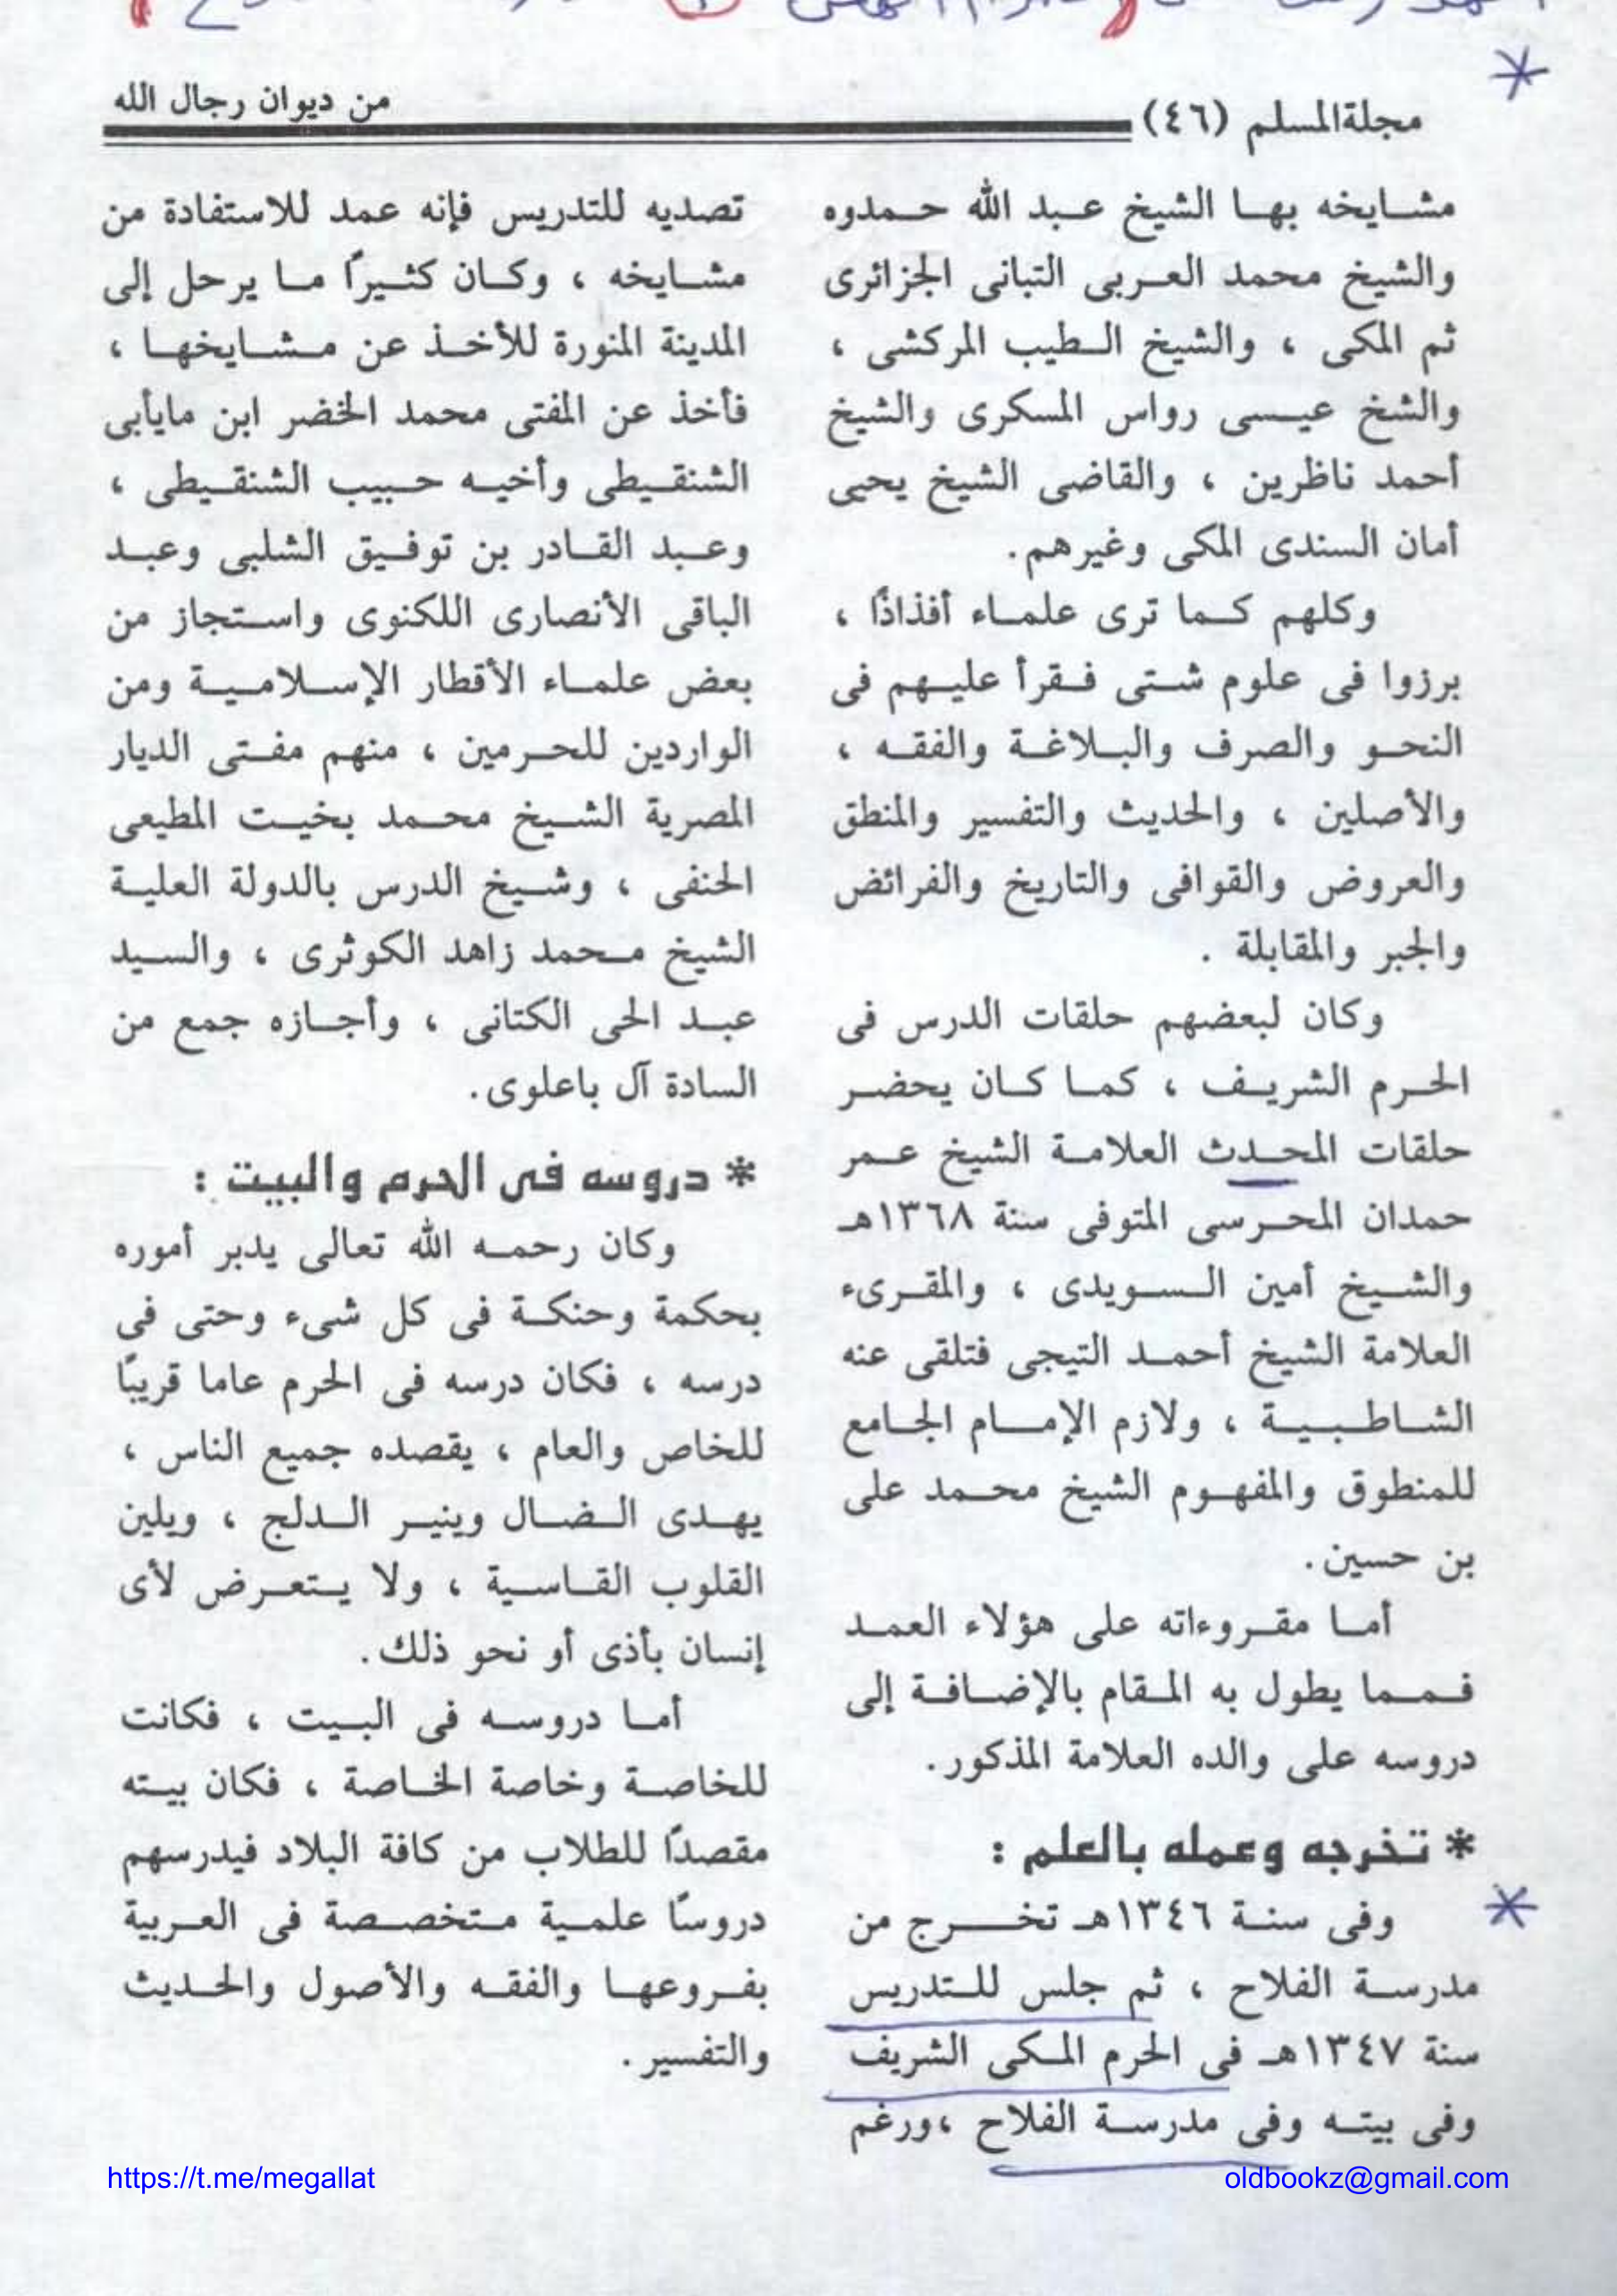 مجلة المسلم (٤٦)
من ديوان رجال الله
مشايخه بها الشيخ عبد الله حمدوه
والشيخ محمد العربى التبانى الجزائرى
ثم المكى ، والشيخ الطيب المركشى ،
والشخ عيسى رواس المسكرى والشيخ
أحمد ناظرين ، والقاضى الشيخ يحيى
أمان السندى المكى وغيرهم.
وكلهم كما ترى علماء أفذاذًا ،
برزوا فى علوم شتى فقرأ عليهم فى
النحو والصرف والبلاغة والفقه ،
والأصلين ، والحديث والتفسير والمنطق
والعروض والقوافى والتاريخ والفرائض
والجبر والمقابلة .
وكان لبعضهم حلقات الدرس فى
الحرم الشريف ، كما كان يحضر
حلقات المحدث العلامة الشيخ عمر
حمدان المحرسى المتوفى سنة ١٣٦٨هـ
والشيخ أمين السويدى ، والمقرىء
العلامة الشيخ أحمد التيجى فتلقى عنه
الشاطبية ، ولازم الإمام الجامع
للمنطوق والمفهوم الشيخ محمد على
بن حسين.
أما مقروءاته على هؤلاء العمد
فمما يطول به المقام بالإضافة إلى
دروسه على والده العلامة المذكور.
* تخرجه وعمله بالعلم :
وفى سنة ١٣٤٦هـ تخرج من
مدرسة الفلاح ، ثم جلس للتدريس
سنة ١٣٤٧هـ فى الحرم المكى الشريف
وفى بيته وفى مدرسة الفلاح ،ورغم
تصديه للتدريس فإنه عمد للاستفادة من
مشايخه ، وكان كثيرًا ما يرحل إلى
المدينة المنورة للأخذ عن مشايخها ،
فأخذ عن المفتى محمد الخضر ابن مايأبى
الشنقيطى وأخيه حبيب الشنقيطى ،
وعبد القادر بن توفيق الشلبى وعبد
الباقى الأنصارى اللكنوى واستجاز من
بعض علماء الأقطار الإسلامية ومن
الواردين للحرمين ، منهم مفتى الديار
المصرية الشيخ محمد بخيت المطيعى
الحنفى ، وشيخ الدرس بالدولة العلية
الشيخ محمد زاهد الكوثرى ، والسيد
عبد الحى الكتانى ، وأجازه جمع من
السادة آل باعلوى.
* دروسه فى الحرم والبيت :
وكان رحمه الله تعالى يدبر أموره
بحكمة وحنكة فى كل شىء وحتى فى
درسه ، فكان درسه فى الحرم عاما قريبًا
للخاص والعام ، يقصده جميع الناس ،
يهدى الضال وينير الدلج ، ويلين
القلوب القاسية ، ولا يتعرض لأى
إنسان بأذى أو نحو ذلك.
أما دروسه فى البيت ، فكانت
للخاصة وخاصة الخاصة ، فكان بيته
مقصدًا للطلاب من كافة البلاد فيدرسهم
دروسًا علمية متخصصة فى العربية
بفروعها والفقه والأصول والحديث
والتفسير.
https://t.me/megallat
oldbookz@gmail.com